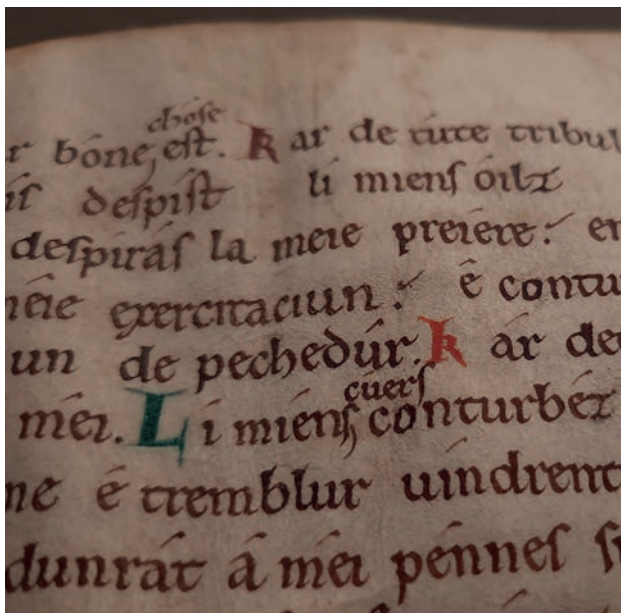 chose
r bóne, est. Kar de tute tribul
is despist li miens óilz
despirás la meie preiere: en
méie exercitaciun: é contu
un de pechedúr. Kar de
cuers
méi. Li miens conturbéz
ne é tremblur uindrent
dunrát á méi pénnes si